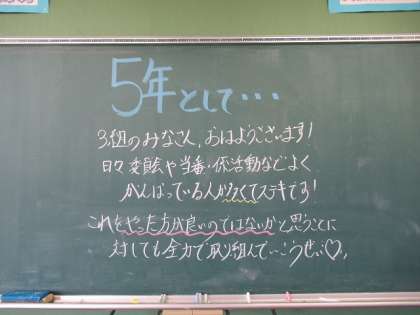 5年として・・・
3組のみなさん、おはようございます!
日々委員会や当番・係活動などよく
がんばっている人が多くてステキです!
これをやった方が良いのではないかと思うことに
対しても全力で取り組んで